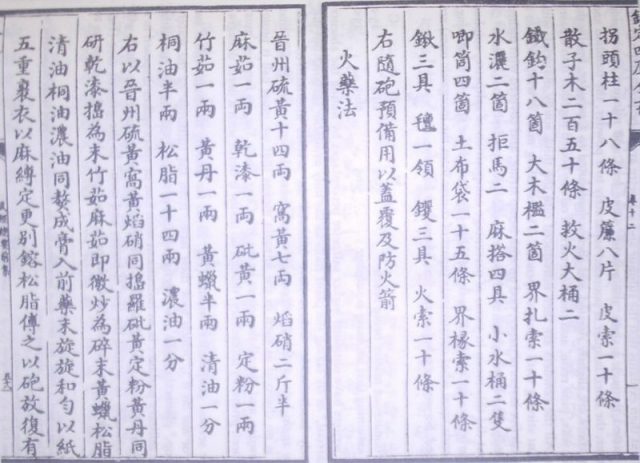 拐頭柱一十八條 皮簾八片 皮索一十條
散子木二百五十條 救火大桶二
鐵鈎十八箇 大木檻二箇 界扎索一十條
水灑二箇 拒馬二 麻搭四具 小水桶二隻
唧筒四箇 土布袋一十五條 界椽索一十條
鍬三具 氊一領 钁三具 火索一十條
右隨砲預備用以蓋覆及防火箭
火藥法
晉州硫黃十四兩 窩黃七兩 焰硝二斤半
麻茹一兩 乾漆一兩 砒黃一兩 定粉一兩
竹茹一兩 黃丹一兩 黃蠟半兩 清油一分
桐油半兩 松脂一十四兩 濃油一分
右以晉州硫黃窩黃焰硝同搗羅砒黃定粉黃丹同
研乾漆搗為末竹茹麻茹即微炒為碎末黃蠟松脂
清油桐油濃油同熬成膏入前藥末旋旋和勻以紙
五重裹衣以麻縛定更別鎔松脂傅之以砲放復有